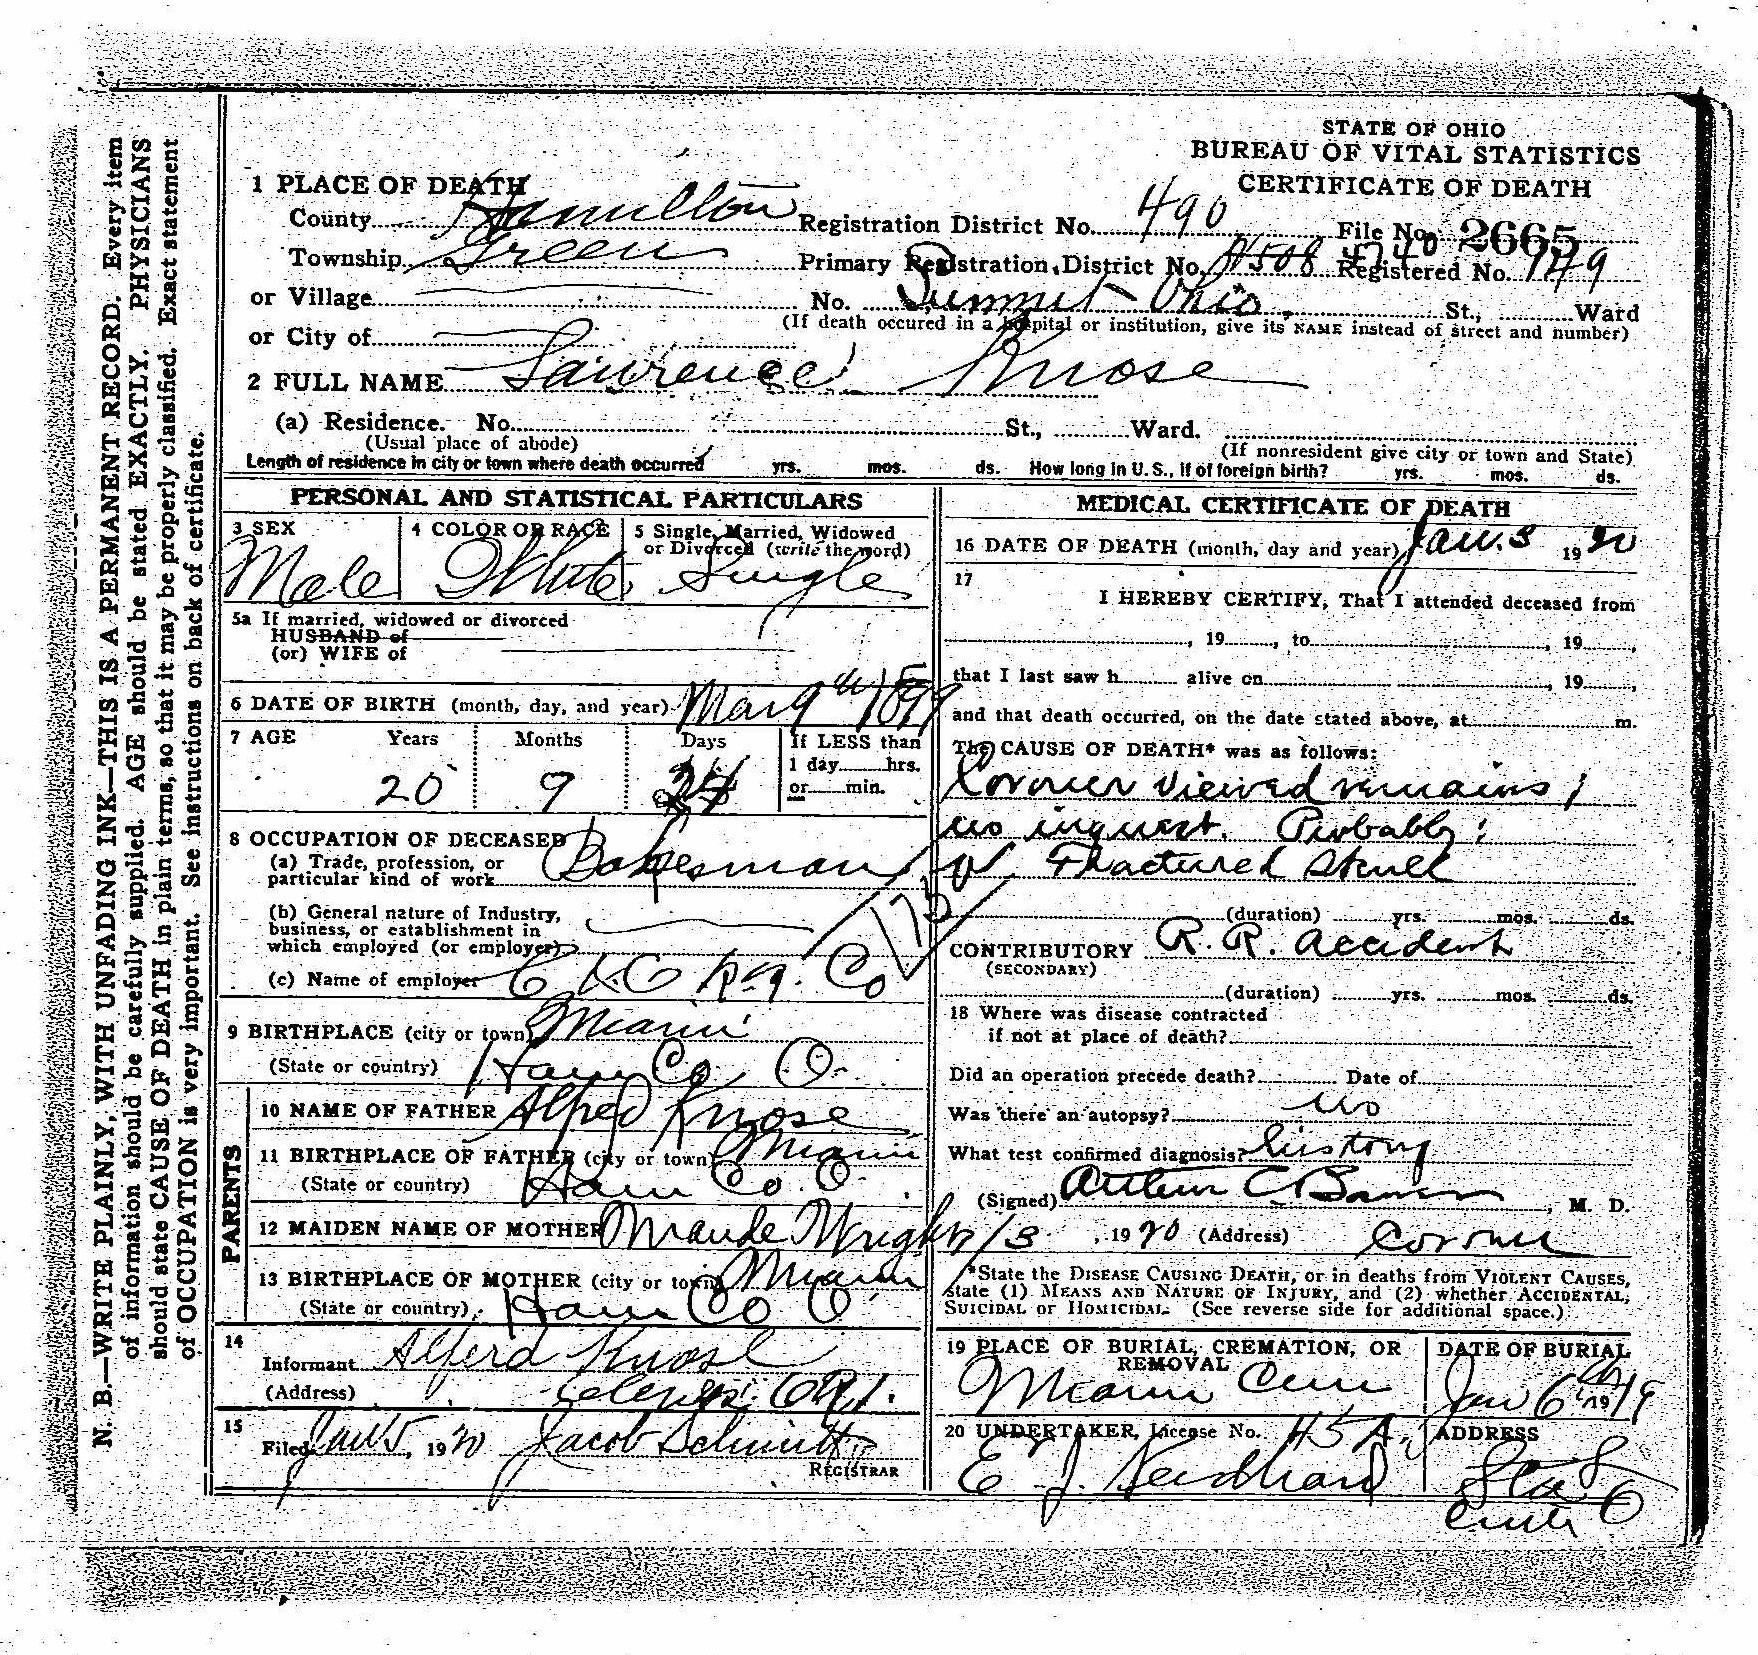 STATE OF OHIO
BUREAU OF VITAL STATISTICS
CERTIFICATE OF DEATH
1 PLACE OF DEATH
County Hamilton Registration District No. 490 File No. 2665
Township Green Primary Registration District No. Registered No. 149
or Village No. Summit Ohio. St., Ward
(If death occured in a hospital or institution, give its NAME instead of street and number)
or City of
2 FULL NAME Lawrence Knose
(a) Residence. No. St., Ward.
(Usual place of abode) (If nonresident give city or town and State)
Length of residence in city or town where death occurred yrs. mos. ds. How long in U. S., if of foreign birth? yrs. mos. ds.
PERSONAL AND STATISTICAL PARTICULARS
3 SEX 4 COLOR OR RACE 5 Single, Married, Widowed
or Divorced (write the word)
Male White Single
5a If married, widowed or divorced
HUSBAND of
(or) WIFE of
6 DATE OF BIRTH (month, day, and year) Mar 9th 1899
7 AGE Years Months Days If LESS than
1 day hrs.
or min.
20 9 24
8 OCCUPATION OF DECEASED
(a) Trade, profession, or
particular kind of work
(b) General nature of Industry,
business, or establishment in
which employed (or employer)
(c) Name of employer C & O Ry. Co
9 BIRTHPLACE (city or town) Miami
(State or country) Ham Co O.
PARENTS
10 NAME OF FATHER Alfred Knose
11 BIRTHPLACE OF FATHER (city or town) Miami
(State or country) Ham Co. O.
12 MAIDEN NAME OF MOTHER Maude Wright
13 BIRTHPLACE OF MOTHER (city or town) Miami
(State or country) Ham Co O
14
Informant Alferd Knose
(Address)
15
Filed Jan 5, 1920 Jacob Schmitt
REGISTRAR
MEDICAL CERTIFICATE OF DEATH
16 DATE OF DEATH (month, day and year) Jan. 3 1920
17
I HEREBY CERTIFY, That I attended deceased from
, 19 , to , 19 ,
that I last saw h alive on , 19 ,
and that death occurred, on the date stated above, at m.
The CAUSE OF DEATH* was as follows:
Coroner viewed remains;
no inquest. Probably:
Fractured Skull
175
(duration) yrs. mos. ds.
CONTRIBUTORY R. R. accident
(SECONDARY)
(duration) yrs. mos. ds.
18 Where was disease contracted
if not at place of death?
Did an operation precede death? Date of
Was there an autopsy? no
What test confirmed diagnosis? history
(Signed) Arthur C. , M. D.
1/3 , 1920 (Address) Coroner
*State the DISEASE CAUSING DEATH, or in deaths from VIOLENT CAUSES,
state (1) MEANS AND NATURE OF INJURY, and (2) whether ACCIDENTAL,
SUICIDAL or HOMICIDAL. (See reverse side for additional space.)
19 PLACE OF BURIAL, CREMATION, OR
REMOVAL
Miami Cem
DATE OF BURIAL
Jan 6th 1919
20 UNDERTAKER, License No. 45 A.
E J Neidhard
ADDRESS
Sta
Cinti O
N. B.—WRITE PLAINLY, WITH UNFADING INK—THIS IS A PERMANENT RECORD. Every item
of information should be carefully supplied. AGE should be stated EXACTLY. PHYSICIANS
should state CAUSE OF DEATH in plain terms, so that it may be properly classified. Exact statement
of OCCUPATION is very important. See instructions on back of certificate.